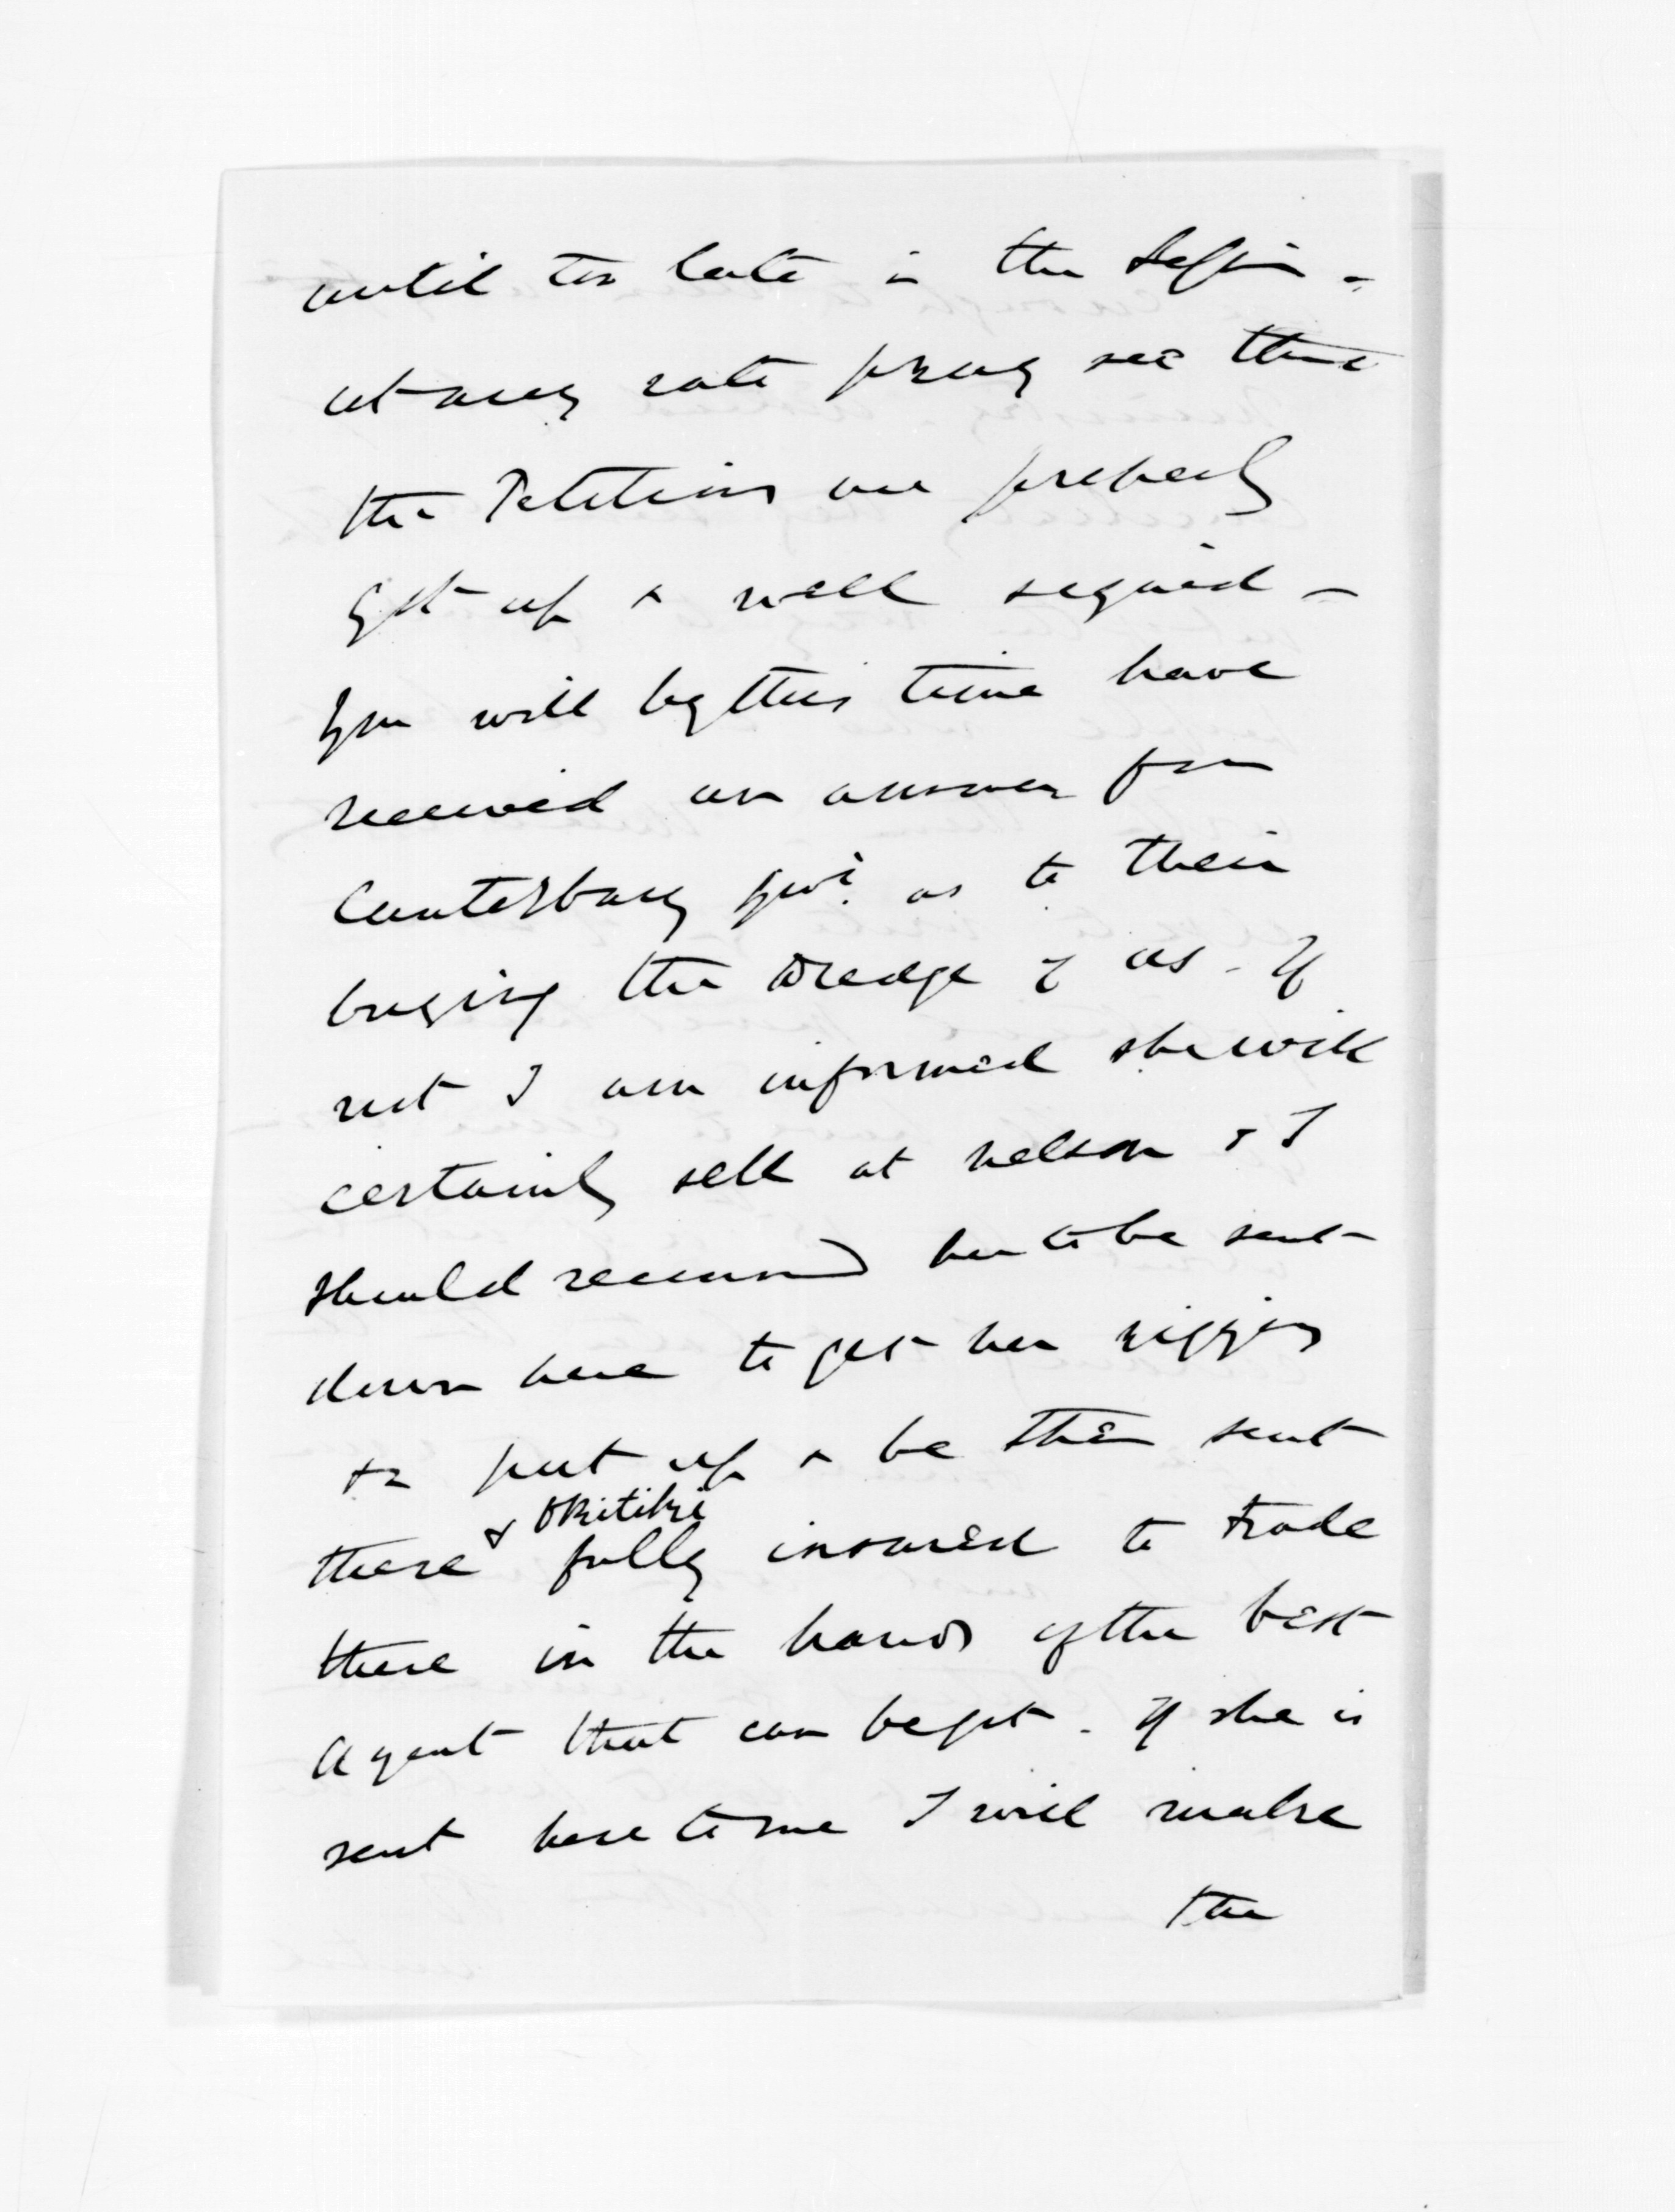 until too late in the Session -
at any rate pray see that
the Petitions are properly
got up & well signed -
You will by this time have
received an answer from
Canterbury Govt. as to their
buying the Dredge of us - If
not I am informed she will
certainly sell at Nelson & I
should recommend her to be sent
down here to get her rigging
&c put up & be then sent
there & Okitiki fully insured to trade
there in the hands of the best
Agent that can be got - If she is
sent here to me I will make
the